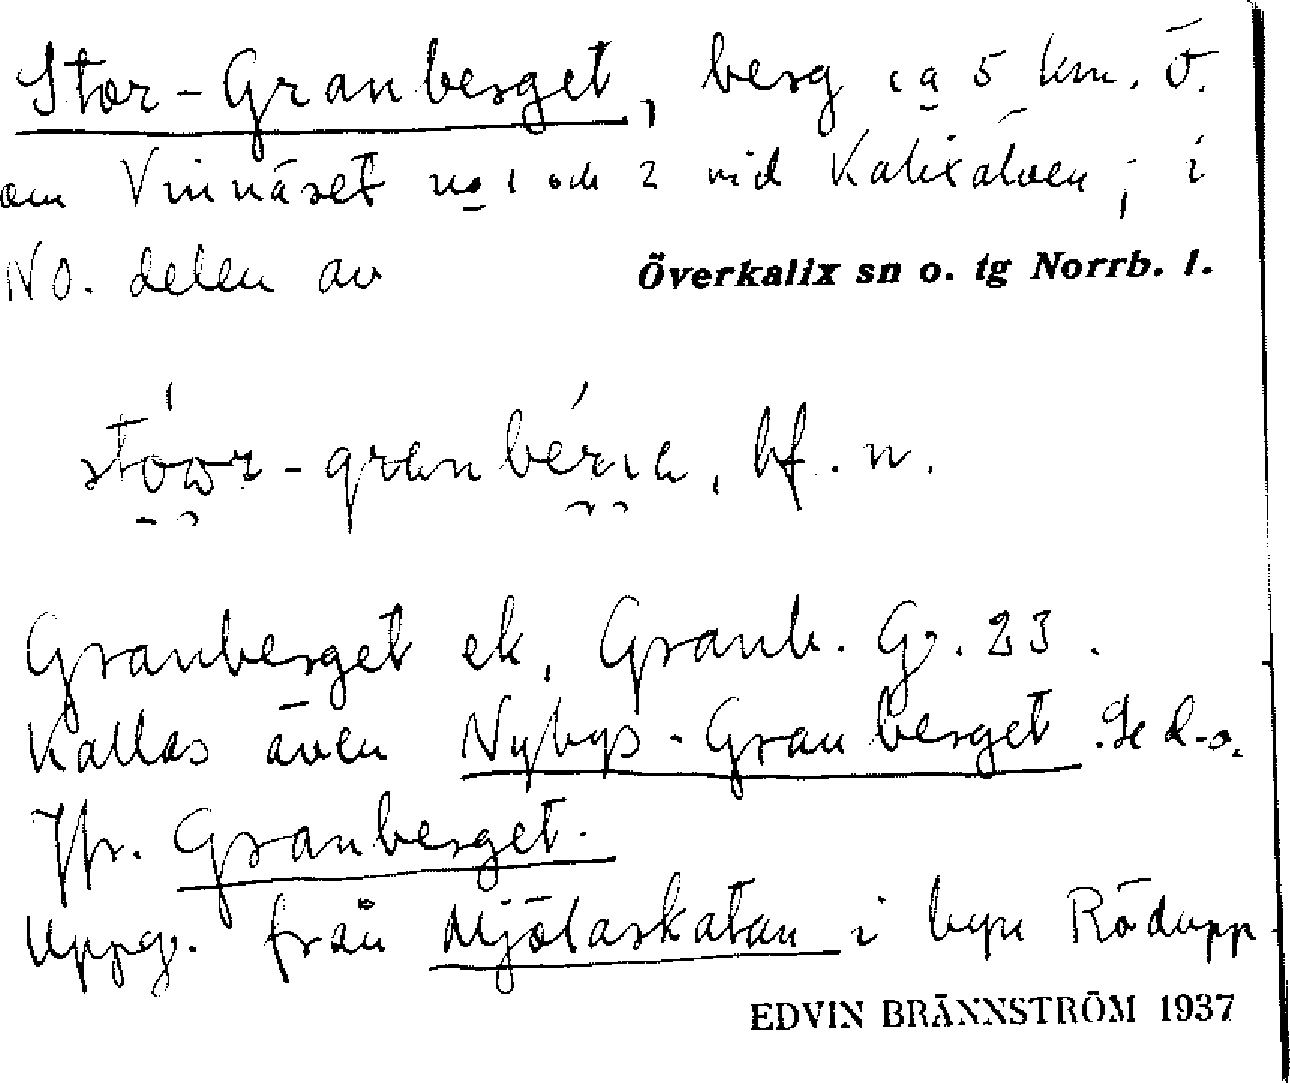 Stor-Granberget, berg ca 5 km. Ö.
om Vinnäset no 1 och 2 vid Kalixälven, i
NO. delen av Överkalix sn o. tg Norrb. l.
bf. n.
Granberget ek, Granb. G. 23.
Kallas även Nybys-Granberget. Se d.o.
Jfr. Granberget.
Uppg. från Mjölaskatan i byn Rödupp.
EDVIN BRÄNNSTRÖM 1937